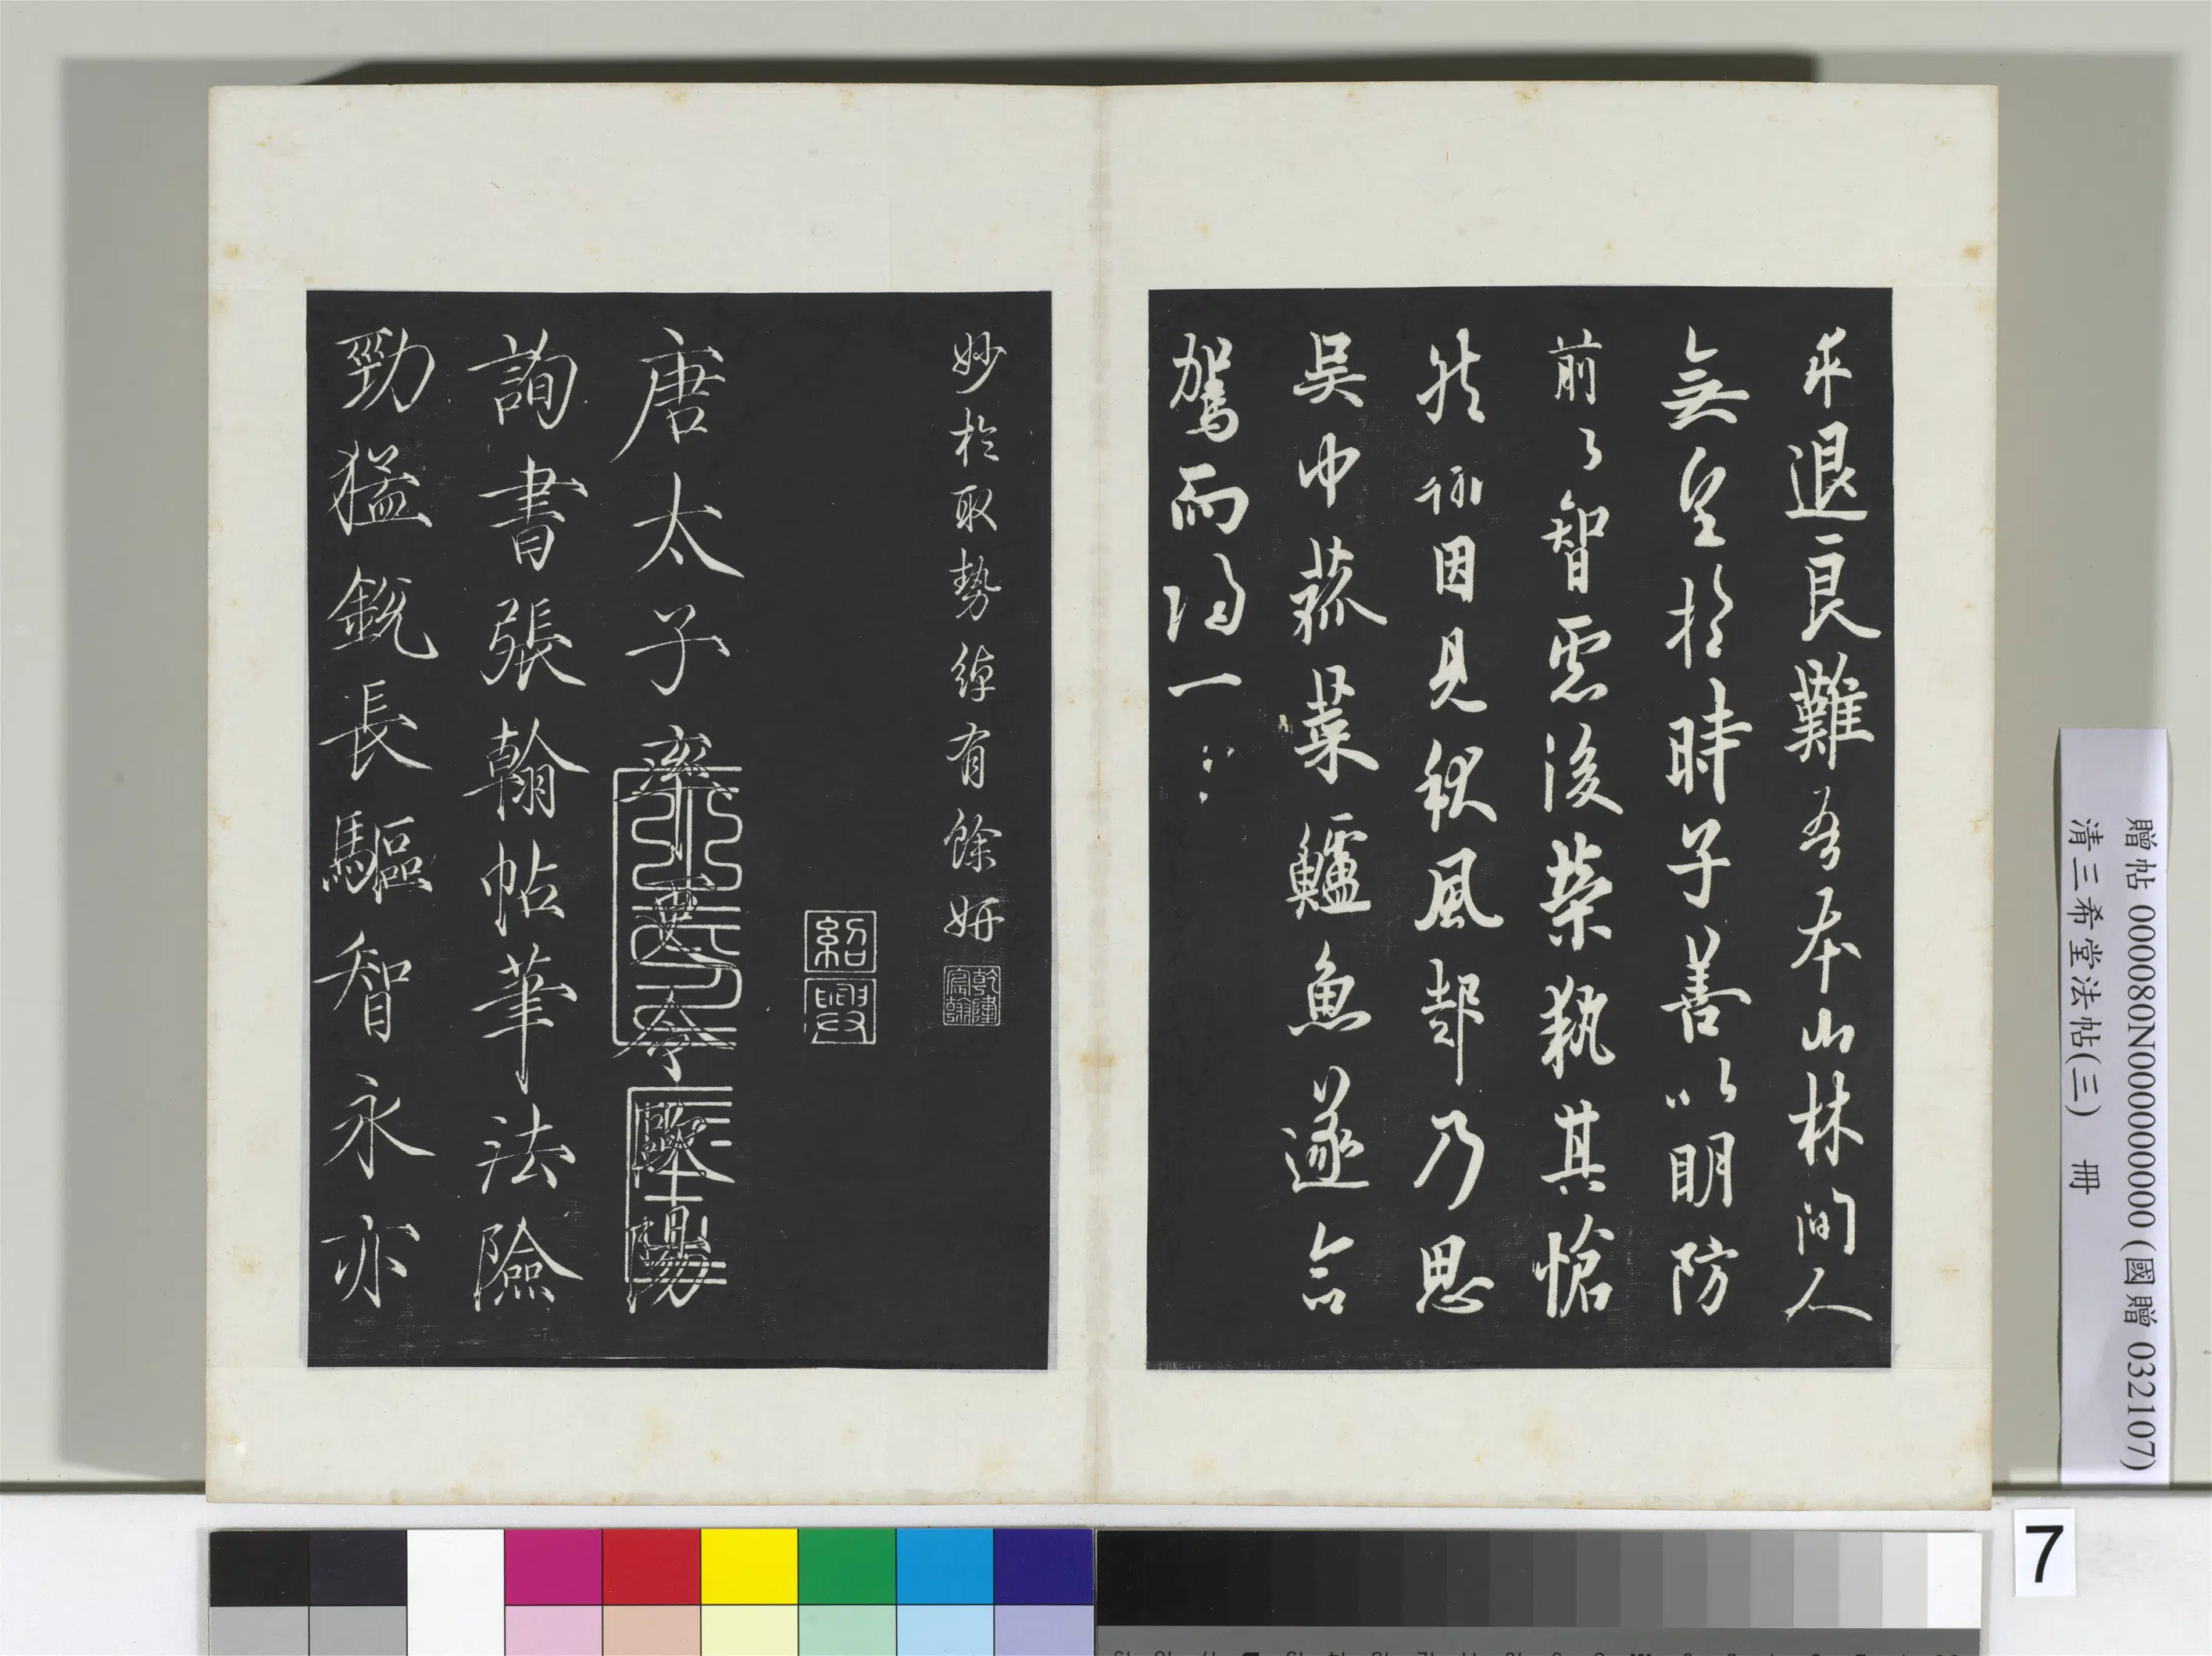 求退良難吾本山林間人
無望於時子善以明防
前以智慮後榮執其愴
然因見秋風起乃思
吳中菰菜鱸魚遂命
駕而歸一
妙於取勢綽有餘妍
乾隆宸翰
紹興
唐太子率更令歐陽
詢書張翰帖筆法險
勁猛銳長驅智永亦
贈帖 000080N000000000 (國贈 032107)
清三希堂法帖(三) 冊
7